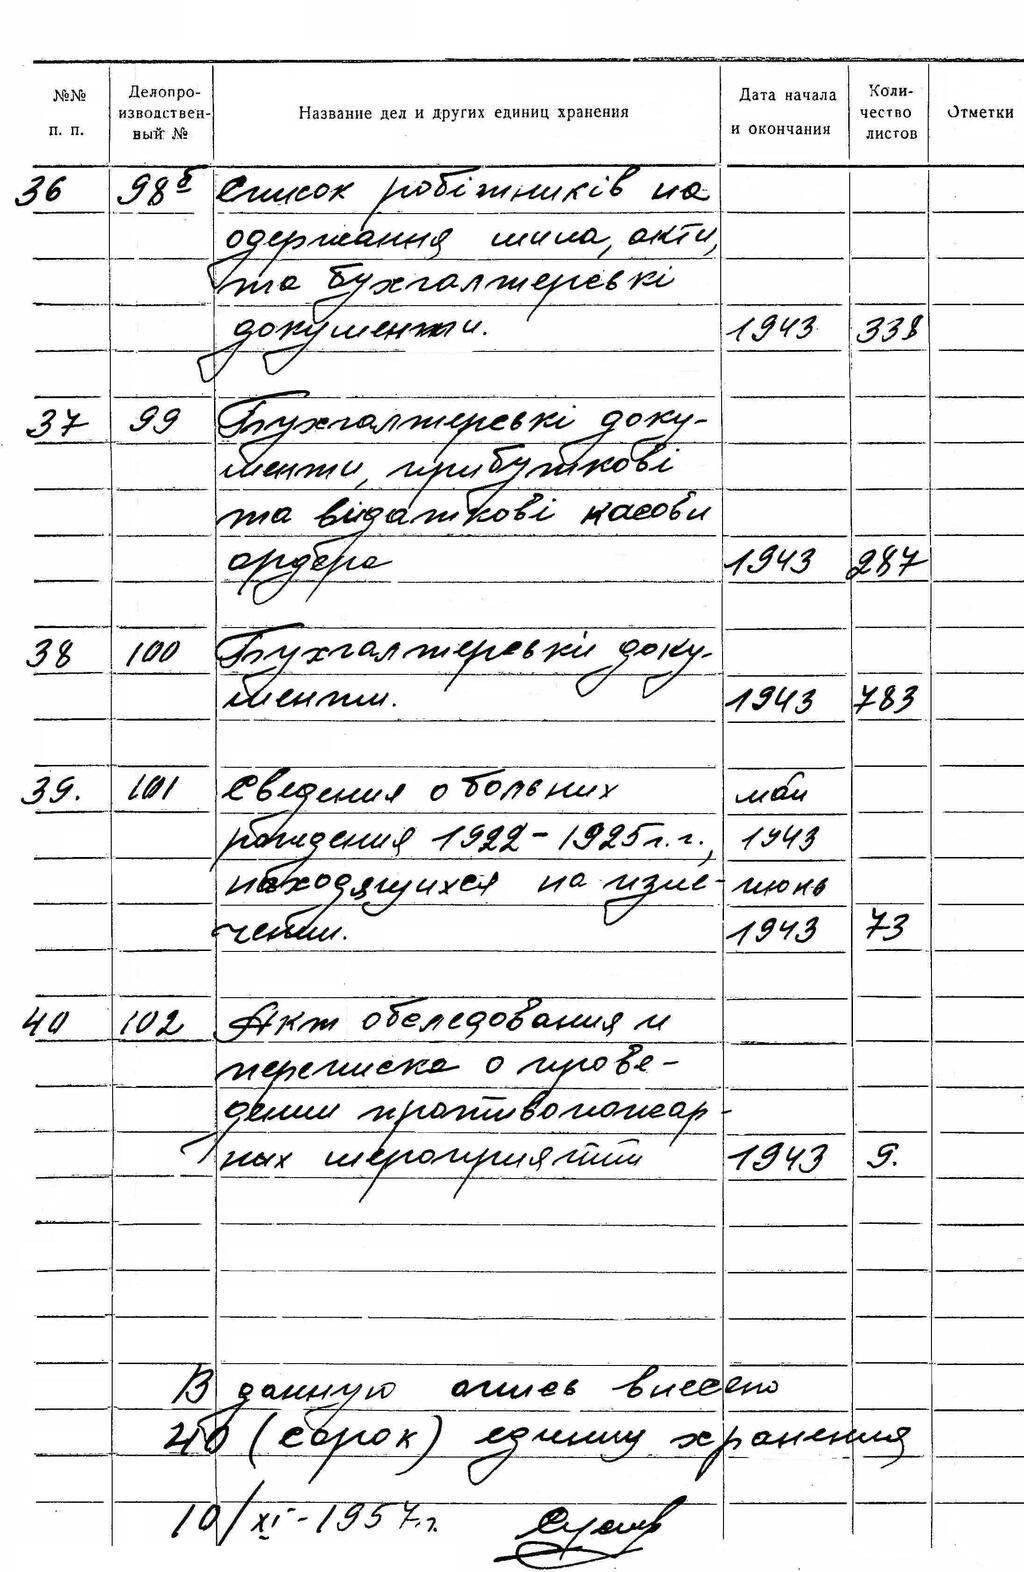 №№ п. п.
Делопро-
изводствен-
вый №
Название дел и других единиц хранения
Дата начала
и окончания
Коли-
чество
листов
Отметки
36 98б Список робітників на
одержання мила, акти,
та бухгалтерські
документи. 1943 338
37 99 Бухгалтерські доку-
менти, прибуткові
та видаткові касови
ордера 1943 287
38 100 Бухгалтерськи доку-
менти. 1943 783
39. 101 Сведения о больних май
рождения 1922-1925 г.г., 1943
находящихся на изле- июнь
чении. 1943 73
40 102 Акт обследования и
переписка о прове-
дении противопожар-
ных мероприятий 1943 9.
В данную опись внесено
40 (сорок) единиц хранения
10/XI-1957 г.